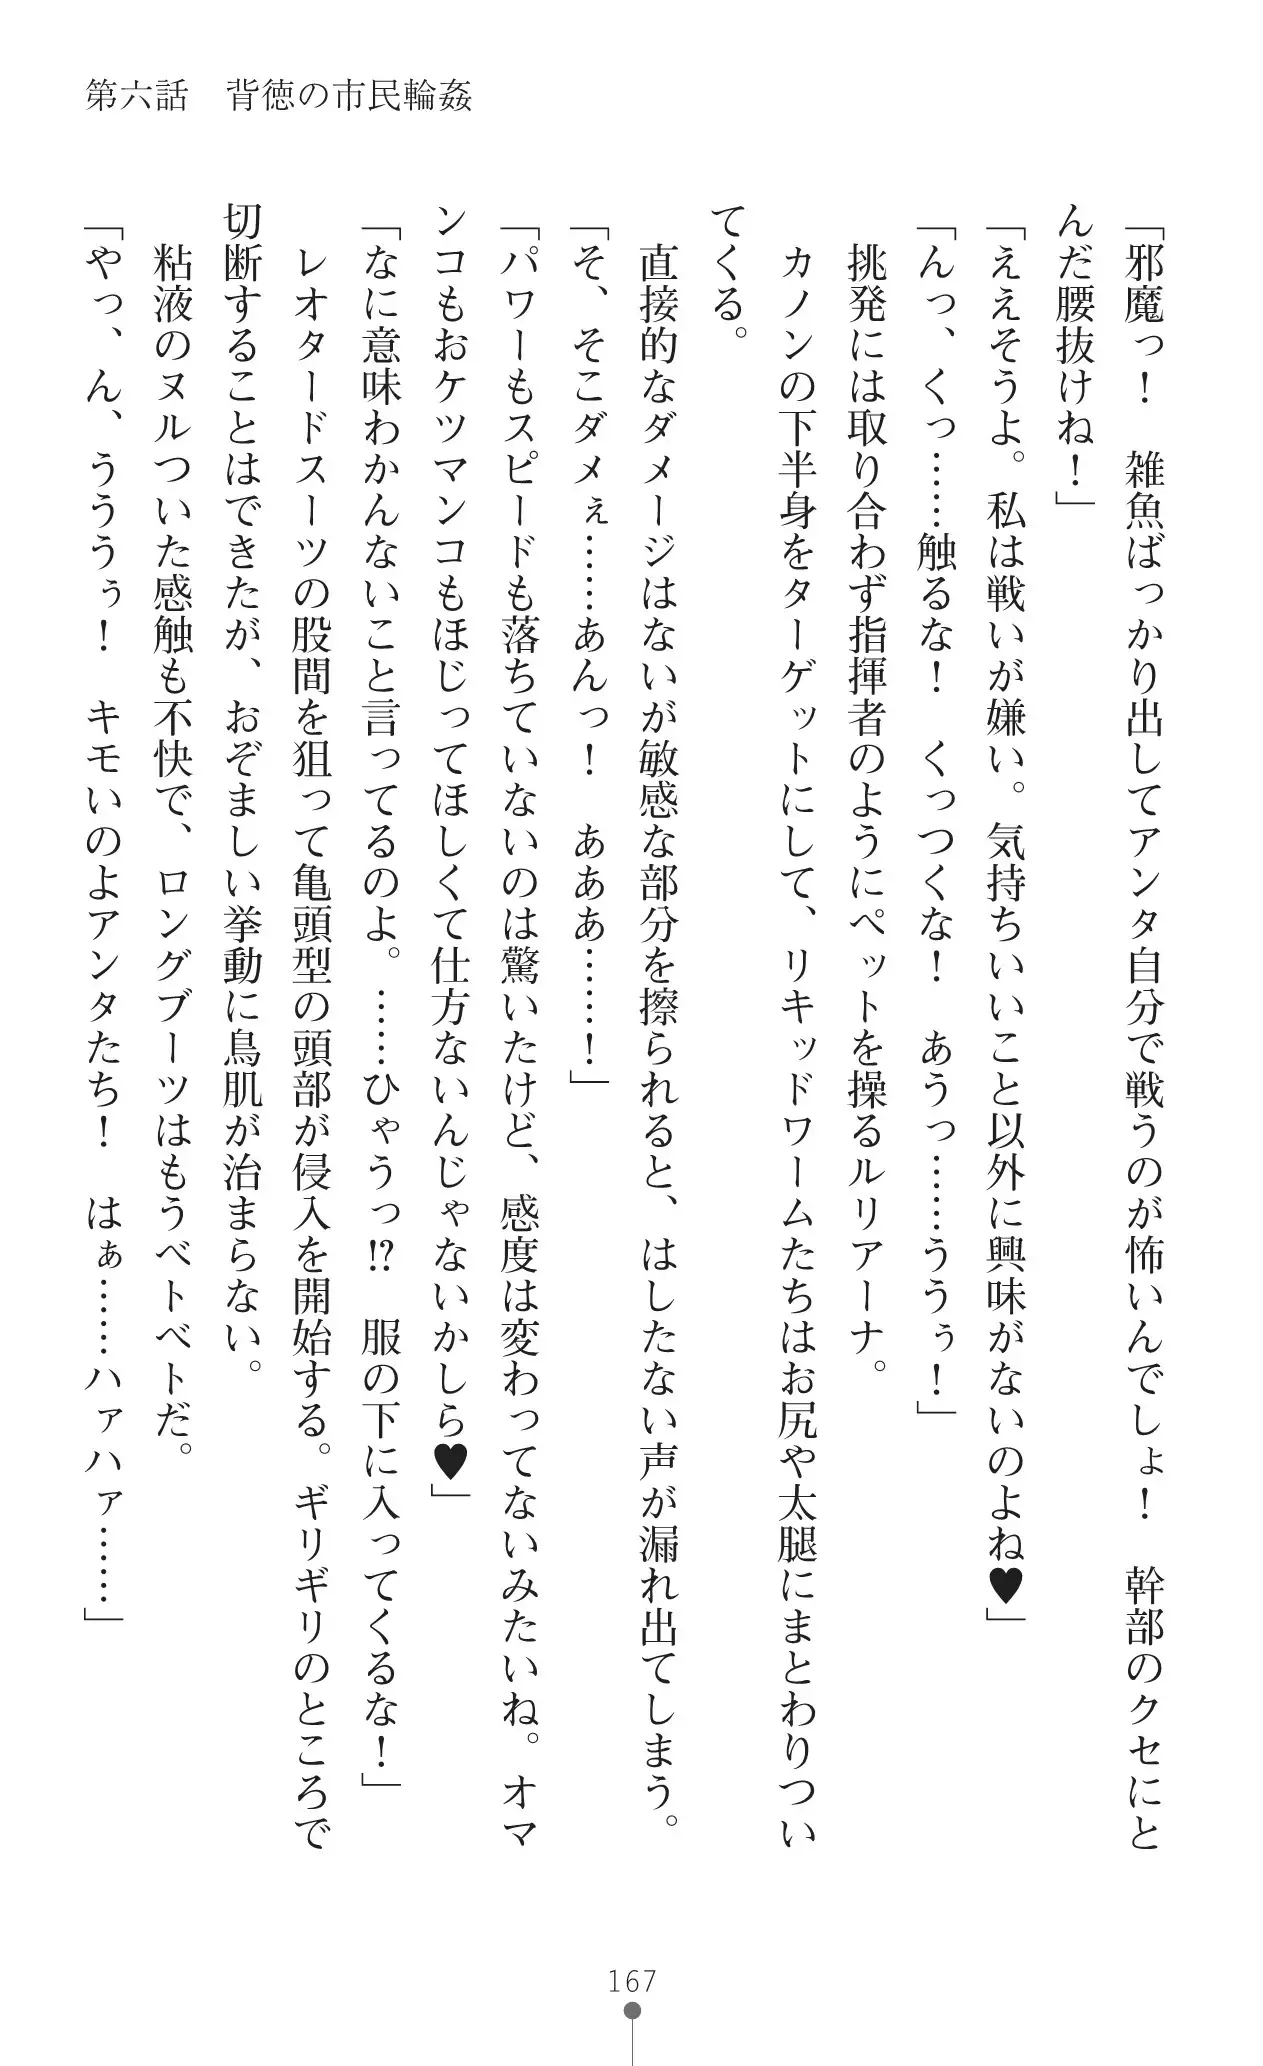 第六話　背徳の市民輪姦
「邪魔っ！　雑魚ばっかり出してアンタ自分で戦うのが怖いんでしょ！　幹部のクセにと
んだ腰抜けね！」
「ええそうよ。私は戦いが嫌い。気持ちいいこと以外に興味がないのよね♥」
「んっ、くっ……触るな！　くっつくな！　あうっ……ううぅ！」
　挑発には取り合わず指揮者のようにペットを操るルリアーナ。
　カノンの下半身をターゲットにして、リキッドワームたちはお尻や太腿にまとわりつい
てくる。
　直接的なダメージはないが敏感な部分を擦られると、はしたない声が漏れ出てしまう。
「そ、そこダメぇ……あんっ！　あああ……！」
「パワーもスピードも落ちていないのは驚いたけど、感度は変わってないみたいね。オマ
ンコもおケツマンコもほじってほしくて仕方ないんじゃないかしら♥」
「なに意味わかんないこと言ってるのよ。……ひゃうっ!?　服の下に入ってくるな！」
　レオタードスーツの股間を狙って亀頭型の頭部が侵入を開始する。ギリギリのところで
切断することはできたが、おぞましい挙動に鳥肌が治まらない。
　粘液のヌルついた感触も不快で、ロングブーツはもうベトベトだ。
「やっ、ん、うううぅ！　キモいのよアンタたち！　はぁ……ハァハァ……」
167